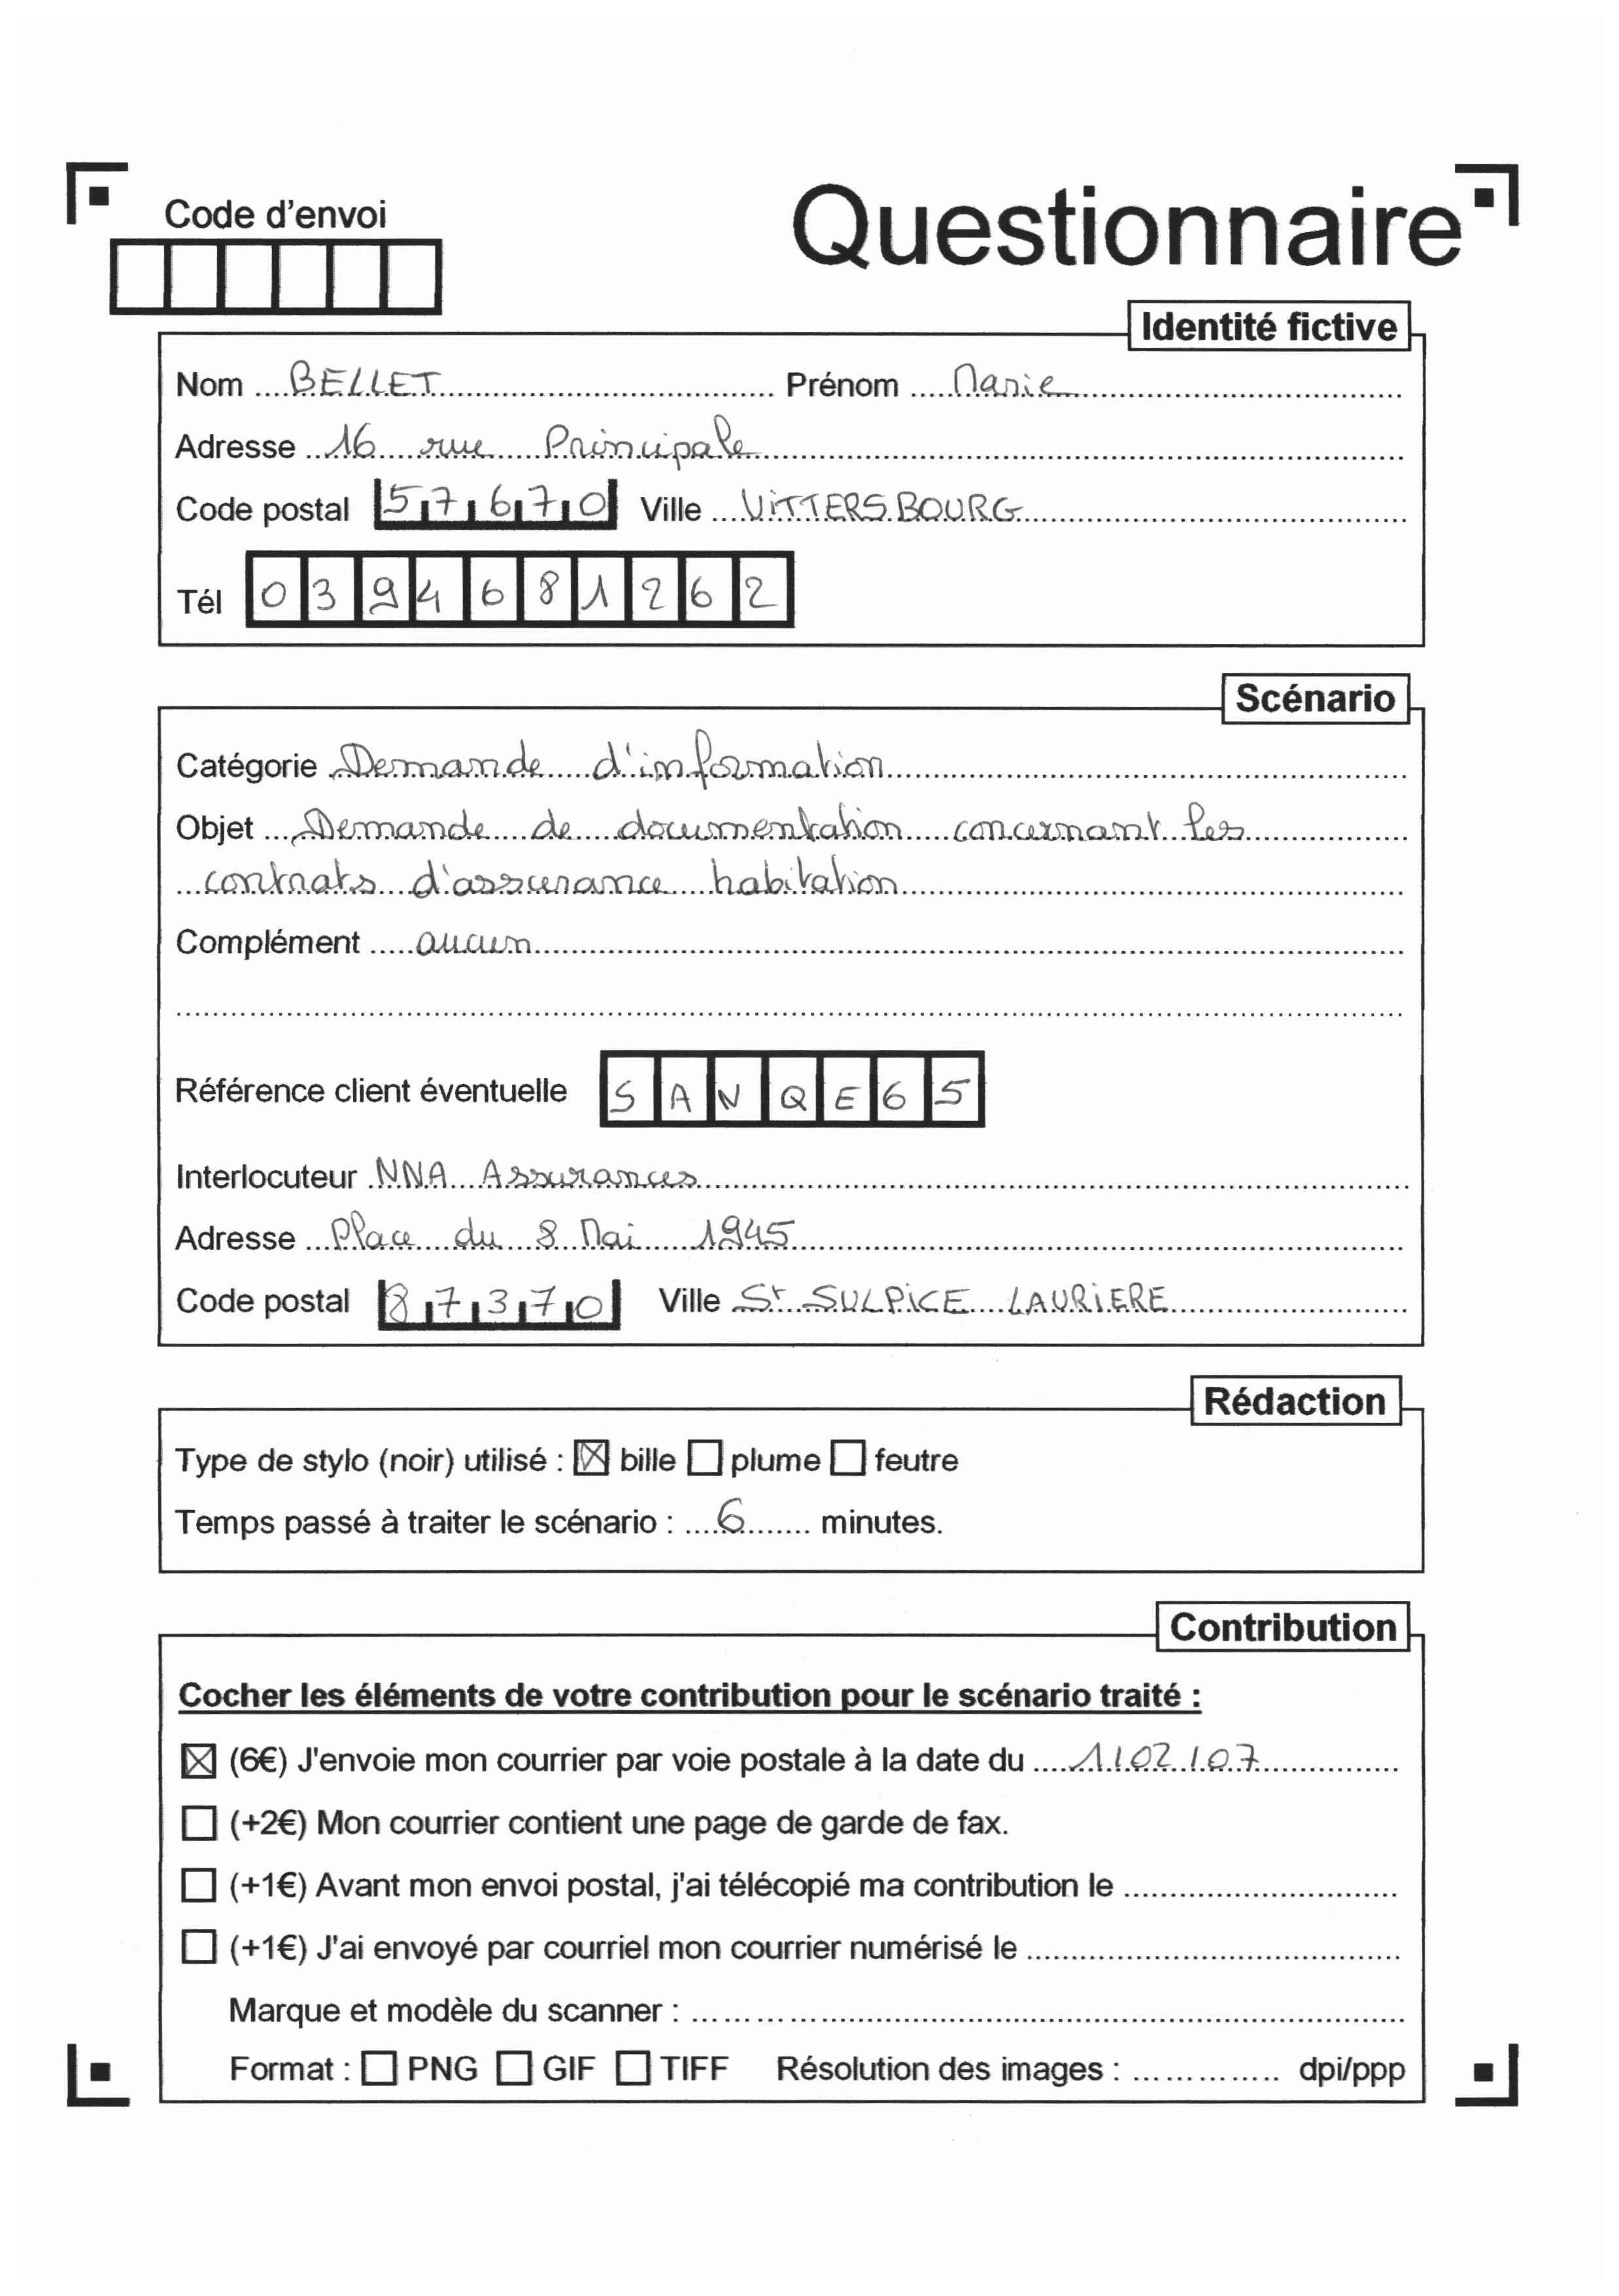 Code d'envoi
Questionnaire
Identité fictive
Nom BELLET Prénom Marie
Adresse 16 rue Principale
Code postal 57670 Ville VITTERSBOURG
Tél 0394681262
Scénario
Catégorie Demande d'information
Objet Demande de documentation concernant les
contrats d'assurance habitation
Complément aucun
Référence client éventuelle SANQE65
Interlocuteur NNA Assurances
Adresse Place du 8 Mai 1945
Code postal 87370 Ville St SULPICE LAURIERE
Rédaction
Type de stylo (noir) utilisé : ☒ bille ☐ plume ☐ feutre
Temps passé à traiter le scénario : 6 minutes.
Contribution
Cocher les éléments de votre contribution pour le scénario traité :
☒ (6€) J'envoie mon courrier par voie postale à la date du 1/02/07
☐ (+2€) Mon courrier contient une page de garde de fax.
☐ (+1€) Avant mon envoi postal, j'ai télécopié ma contribution le
☐ (+1€) J'ai envoyé par courriel mon courrier numérisé le
Marque et modèle du scanner :
Format : ☐ PNG ☐ GIF ☐ TIFF Résolution des images : dpi/ppp